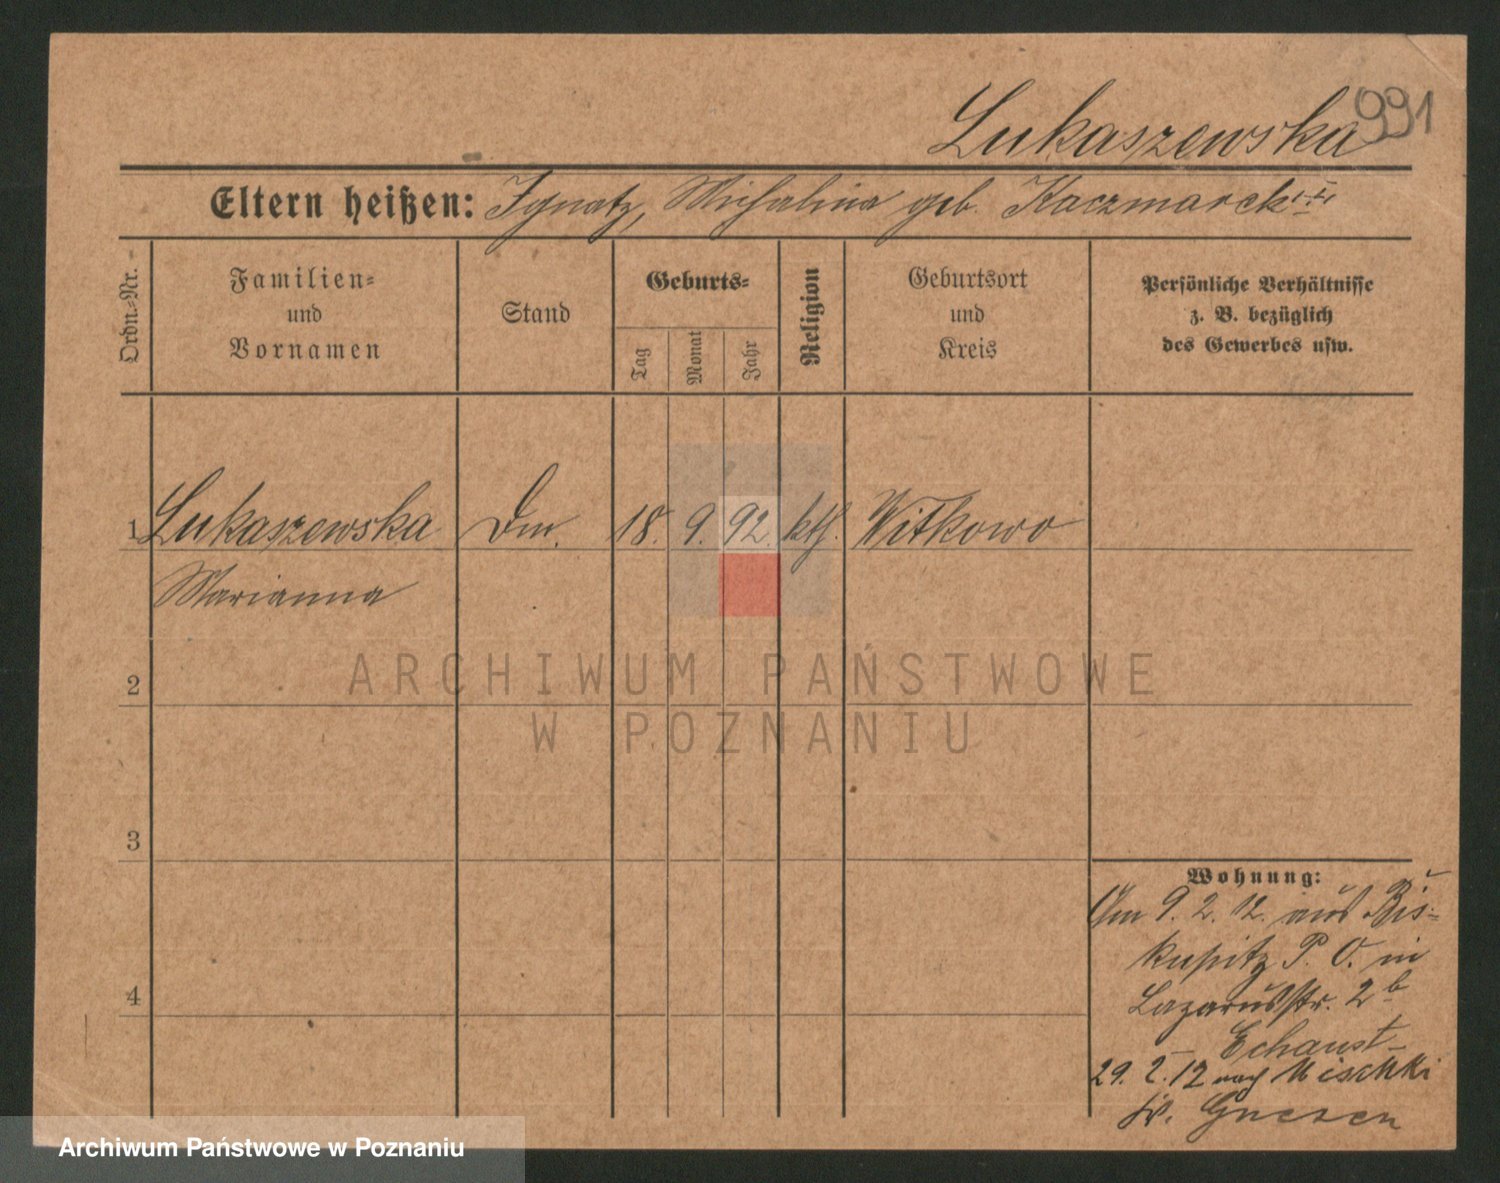 Lukaszewska 991
Eltern heißen: Ignatz, Michalina geb. Kaczmarek
Ordn.-Nr.
Familien-
und
Vornamen
Stand
Geburts-
Tag
Monat
Jahr
Religion
Geburtsort
und
Kreis
Persönliche Verhältnisse
z. B. bezüglich
des Gewerbes usw.
1 Lukaszewska Dm. 18. 9. 92. kth. Witkowo
Marianna
2
3
4
ARCHIWUM PAŃSTWOWE
W POZNANIU
Wohnung:
Am 9. 2. 12. aus Bis-
kupitz P. O. in
Lazarusstr. 2b
Echaust
29. 2. 12 nach Mischki
Kr. Gnesen
Archiwum Państwowe w Poznaniu